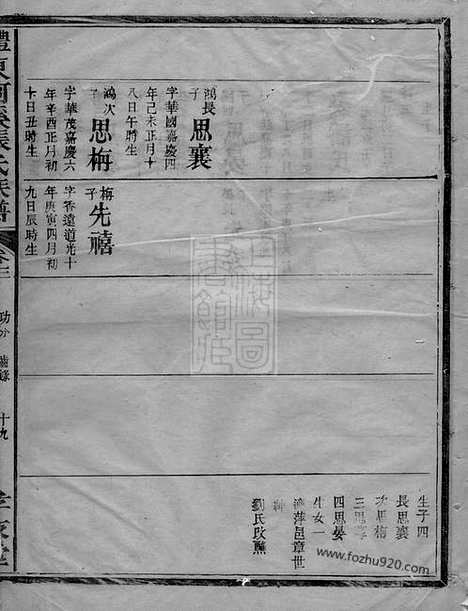 鴻長子
思襄
字華國嘉慶四
年己未正月十
八日午時生
鴻次子
思梅
字華茂嘉慶六
年辛酉正月初
十日丑時生
梅子
先禧
字香遠道光十
年庚寅四月初
九日辰時生
生子四
長思襄
次思梅
三思
四思晏
生女一
適萍邑章世
劉氏改醮
東 張氏族譜
卷
十九
www.fozhu9200.com